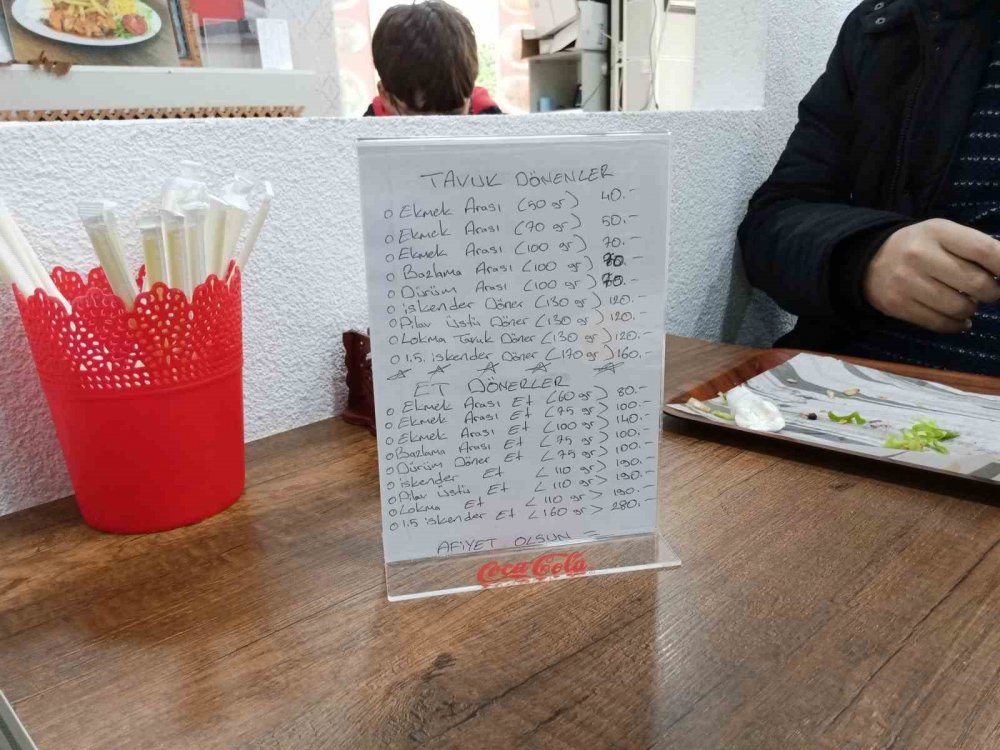 TAVUK DÖNENLER
o Ekmek Arası (50 gr) 40.-
o Ekmek Arası (70 gr) 50.-
o Ekmek Arası (100 gr) 70.-
o Bazlama Arası (100 gr) 70.-
o Dürüm Arası (100 gr) 70.-
o iskender Döner (130 gr) 120.-
o Pilav Üstü Döner (130 gr) 120.-
o Lokma Tavuk Döner (130 gr) 120.-
o 1.5. iskender Döner (170 gr) 160.-
ET DÖNERLER
o Ekmek Arası Et (60 gr) 80.-
o Ekmek Arası Et (75 gr) 100.-
o Ekmek Arası Et (100 gr) 140.-
o Bazlama Arası Et (75 gr) 100.-
o Dürüm Döner Et (75 gr) 100.-
o iskender Et (110 gr) 190.-
o Pilav Üstü Et (110 gr) 190.-
o Lokma Et (110 gr) 190.-
o 1.5 iskender Et (160 gr) 280.-
AFİYET OLSUN
Coca-Cola